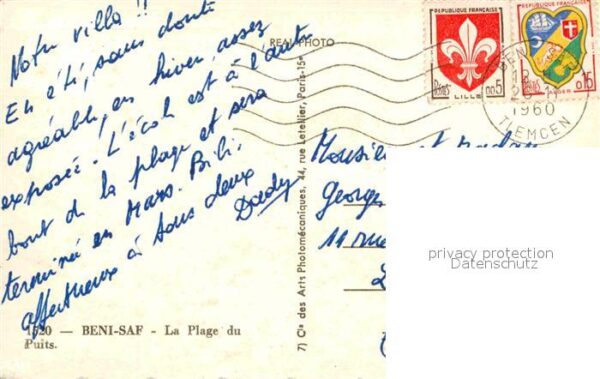 Notre villa !!
En été, sans doute
agréable, en hiver, assez
exposée. L'école est à l'autre
bout de la plage et sera
terminée en Mars. Bibi,
affectueux à tous deux
Dædy
1520 — BENI-SAF - La Plage du
Puits.
REAL PHOTO
7) Cie des Arts Photomécaniques, 44, rue Letellier, Paris-15e
REPUBLIQUE FRANÇAISE
POSTES LILLE 0,05
REPUBLIQUE FRANÇAISE
POSTES ALGER 0,15
BENI
1960
TLEMCEN
Monsieur et Madame
George
11 rue
privacy protection
Datenschutz